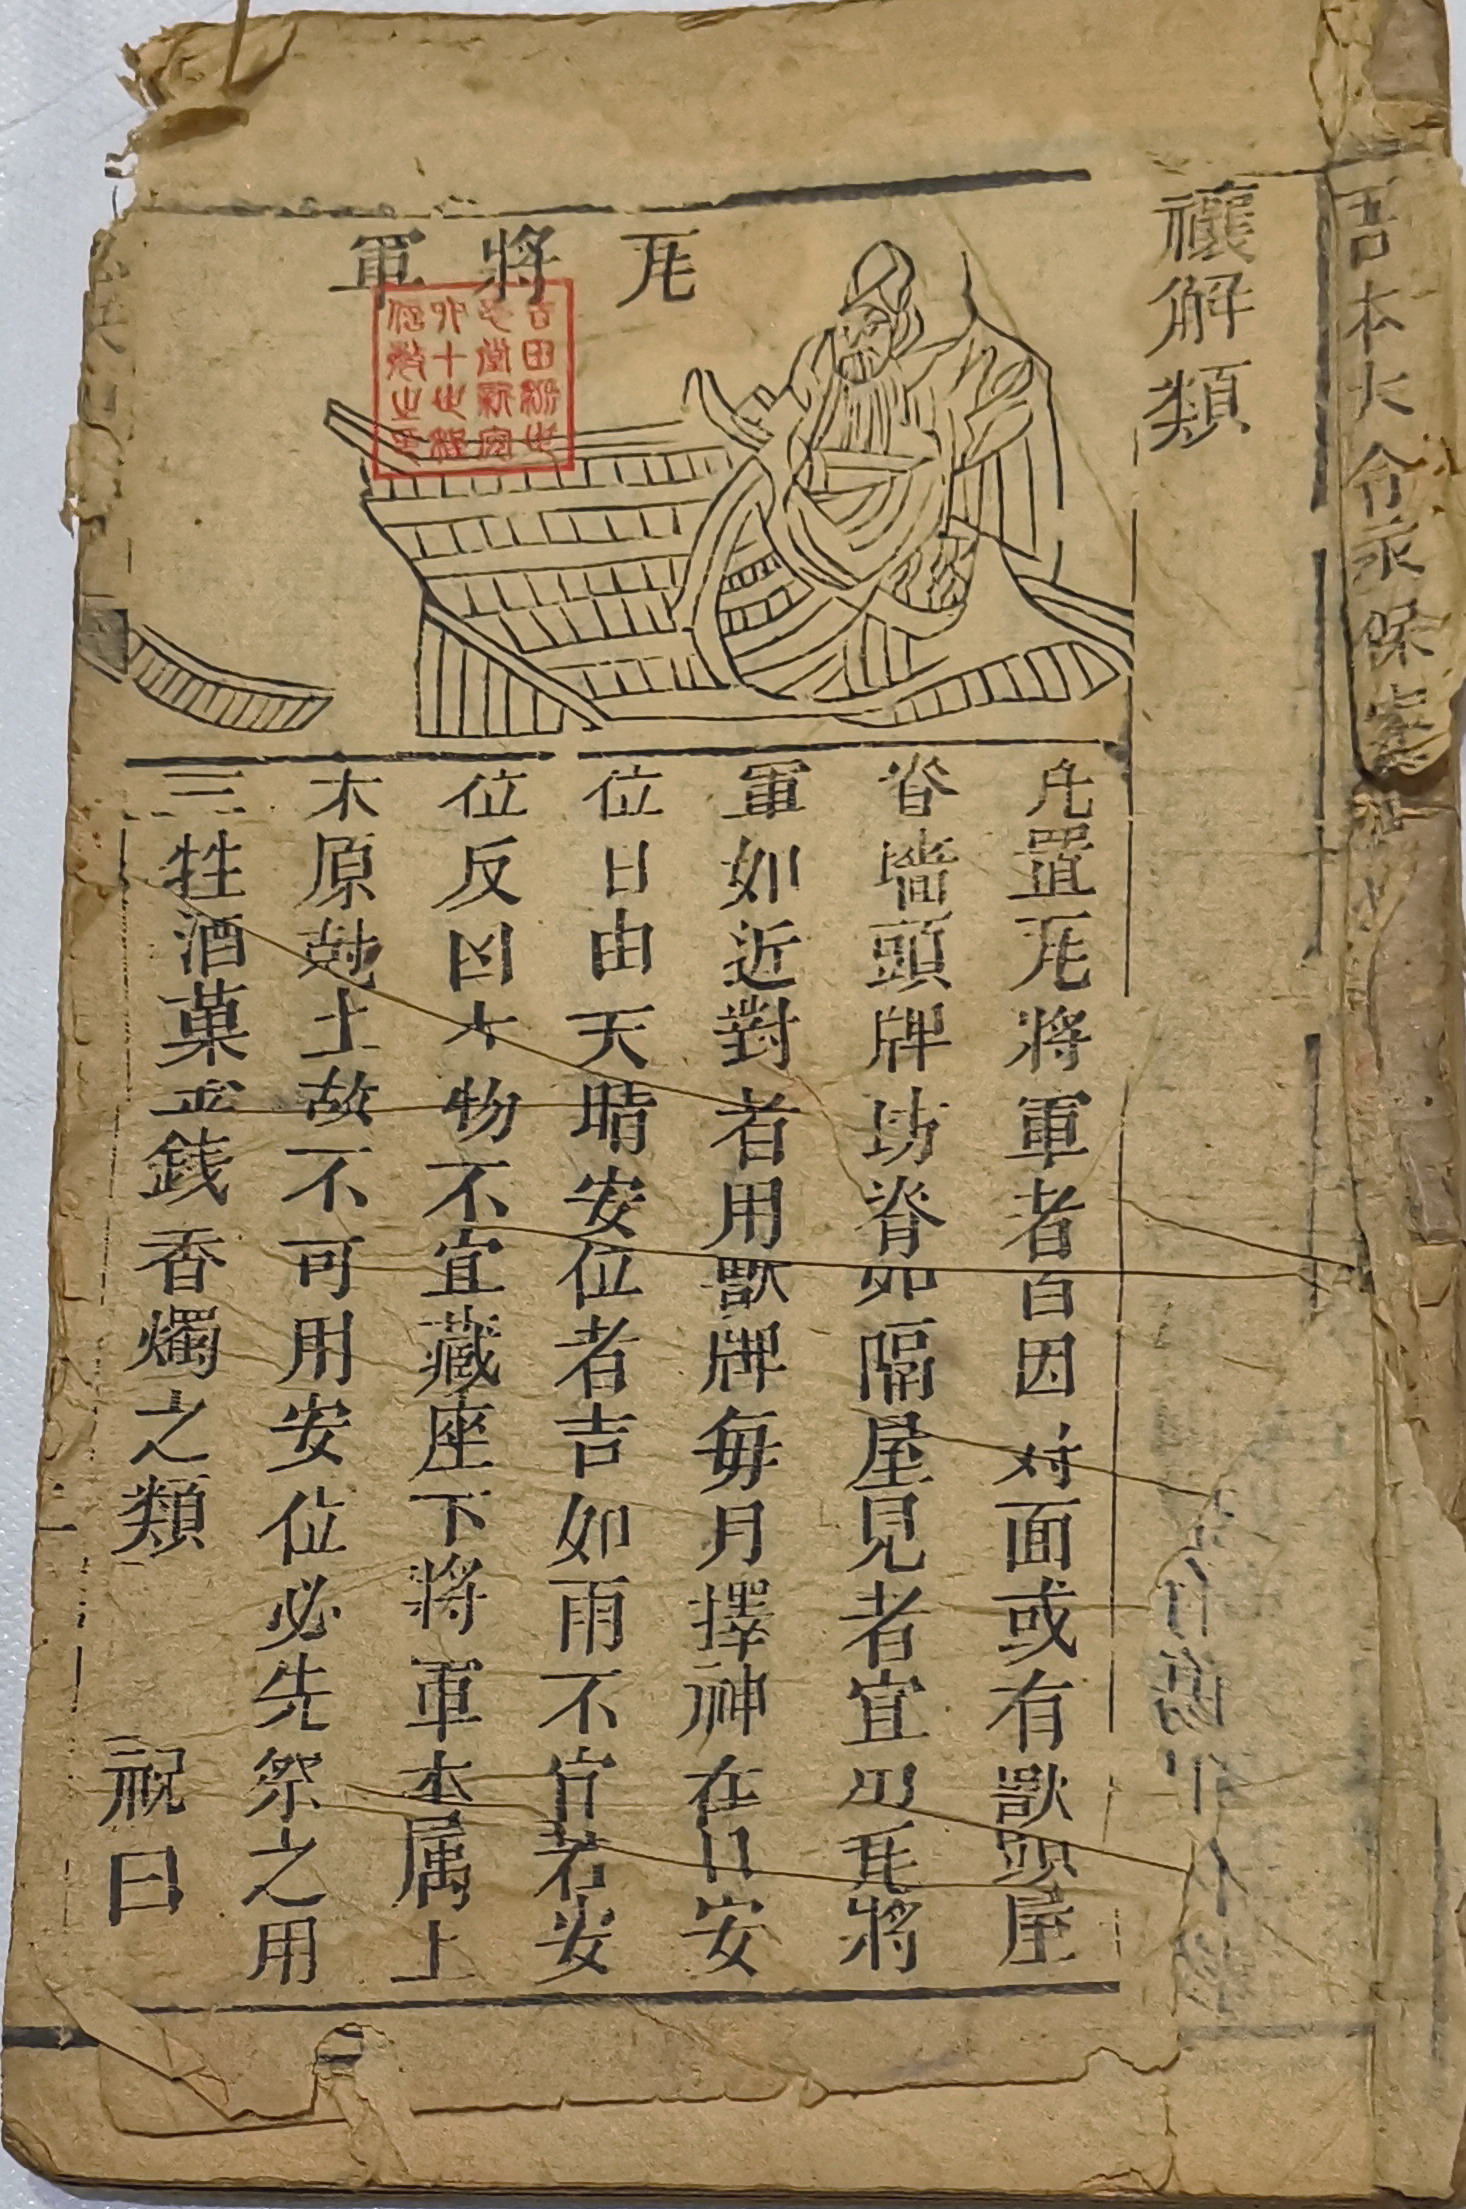 禳解類
瓦將軍
凡置瓦將軍者皆因对面或有獸頭屋
脊墻頭牌坊脊如隔屋見者宜用瓦將
軍如近對者用獸牌每月擇神在日安
位日由天晴安位者吉如雨不宜若安
位反凶木物不宜藏座下將軍本属土
木原尅土故不可用安位必先祭之用
三牲酒菓金銭香燭之類
祝曰